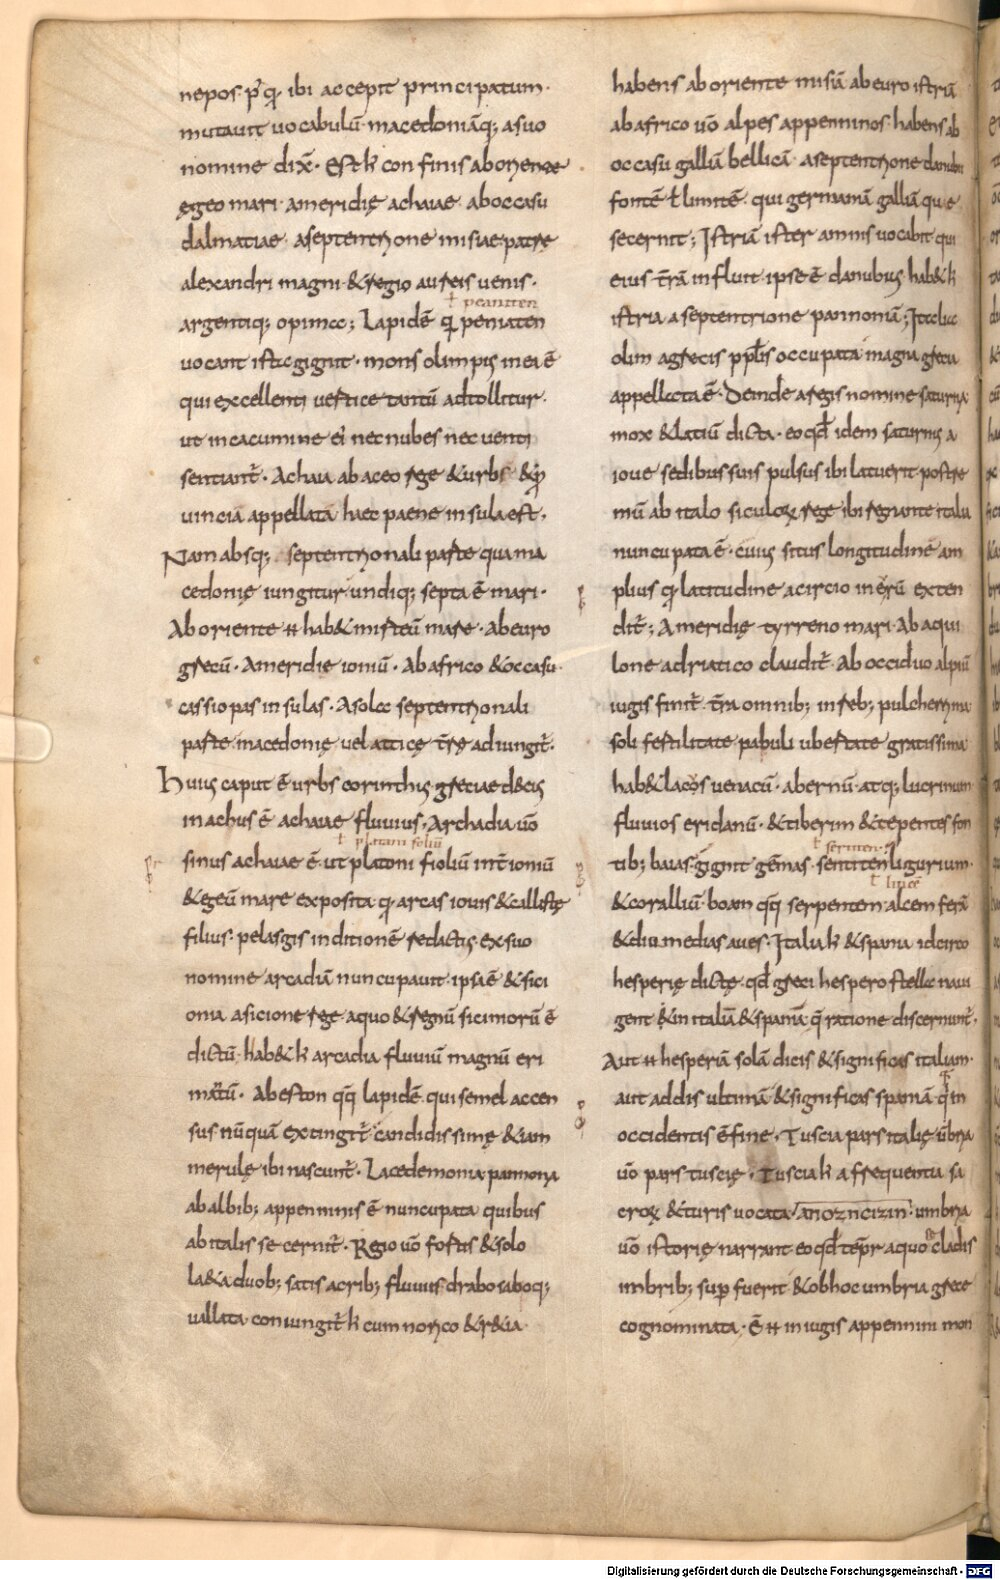 nepos p̄ q̨ ibi accepit principatum·
mutauit uocabulū· macedoniāq; a suo
nomine dix̄· Est k̄ confinis ab oriente
ęgeo mari· a meridię achaiae· ab occasu
dalmatiae· a septentrione misiae patrię
alexandri magni· & regio aureis uenis·
ł peaniten
argentiq; opimae; Lapidē q̨ peniaten
uocant istic gignit· mons olimpus in ea ē
qui excellenti uertice tantū adtollitur·
ut in cacumine ei nec nubes nec uenti
sentiant̄· Achaia ab aceo rege & urbs &
uincia appellata haec paene insula est·
Nam absq; septentrionali parte qua ma
cedonię iungitur undiq; septa ē mari·
Ab oriente hab& mirteū mare· Ab euro
grecū· A meridie ioniū· Ab africo & occasu·
cassiopas insulas· A sola septentrionali
parte macedonię uel atticę tr̄ę adiungit̄·
Huius caput ē urbs corinthus gręciae decus
inachus ē achaiae fluuius· Archadia uō
ł platani foliū
sinus achaiae ē· ut platoni fiolium int̄ ioniū
& egeū mare exposita· q̨ arcas iouis & callistę
filius· pelasgis in ditionē redactis· ex suo
nomine arcadiā nuncupauit· ipsa ē & sici
onia a sicione rege a quo & regnū sicinorū ē
dictū· hab& k̄ arcadia fluuiū magnū eri
mātū· Abeston qq̄ lapidē qui semel accen
sus nūquā extingit̄ candidissimę & iam
merulę ibi nascunt̄· Lacedemonia pannonia
ab albib; appenninis ē nuncupata quibus
ab italis secernit̄· Regio uō fortis & solo
laeta duob; satis acrib; fluuiis drabo saboq;
uallata· coniungit̄ k̄ cum norico & retia·
habens ab oriente misiā ab euro istriā
ab africo uō alpes appenninos· habens ab
occasu galliā bellicā· a septentrione danubii
fontē ł limitē· qui germaniā galliāque
secernit; Istriā ister amnis uocabit qui
eius tr̄ā influit· ipse ē danubius· hab& k̄
istria a septentrione pannoniā; Italia
olim a grecis pp̄lis occupata magna grecia
appellata ē· Deinde a regis nomine saturnia
mox & latiū dicta· eo qd̄ idem saturnus a
ioue sedibus suis pulsus ibi latuerit· postre
mū ab italo siculorum rege ibi regnante italia
nuncupata ē· cuius situs longitudinē am
plius q̨ latitudine a circio in eurū exten
dit̄; A meridię tyrreno mari· Ab aqui
lone adriatico claudit̄· Ab occiduo alpiū
iugis finit̄· tr̄a omnib; in reb; pulcherrima
soli fertilitate pabuli ubertate gratissima
hab& lacos uenacū· abernū· atq; lucrinum
fluuios eridanū· & tiberim & tepentes fon
ł seriten·
tib; baias· gignit gēmas· sentiten ligurium·
ł lincē
& coralliū· boam qq̄ serpentem· alcem ferā
& diumedias aues· Italia k̄ & spania idcirco
hesperię dictę· qd̄ greci hespero stella naui
gent & in italiā & spaniā q̄ ratione discernunt̄·
Aut hesperiā solā dicis & significas italiam·
aut addis ultimā & significas spaniā· q̨ in
occidentis ē fine· Tuscia pars italię· ūbria
uō pars tuscię· Tuscia k̄ a frequentia sa
crorum & turis uocata· umbria
uō istorię narrant eo qd̄ tēpr aquosę cladis
imbrib; sup fuerit & ob hoc umbria grece
cognominata· ē in iugis appennini mon